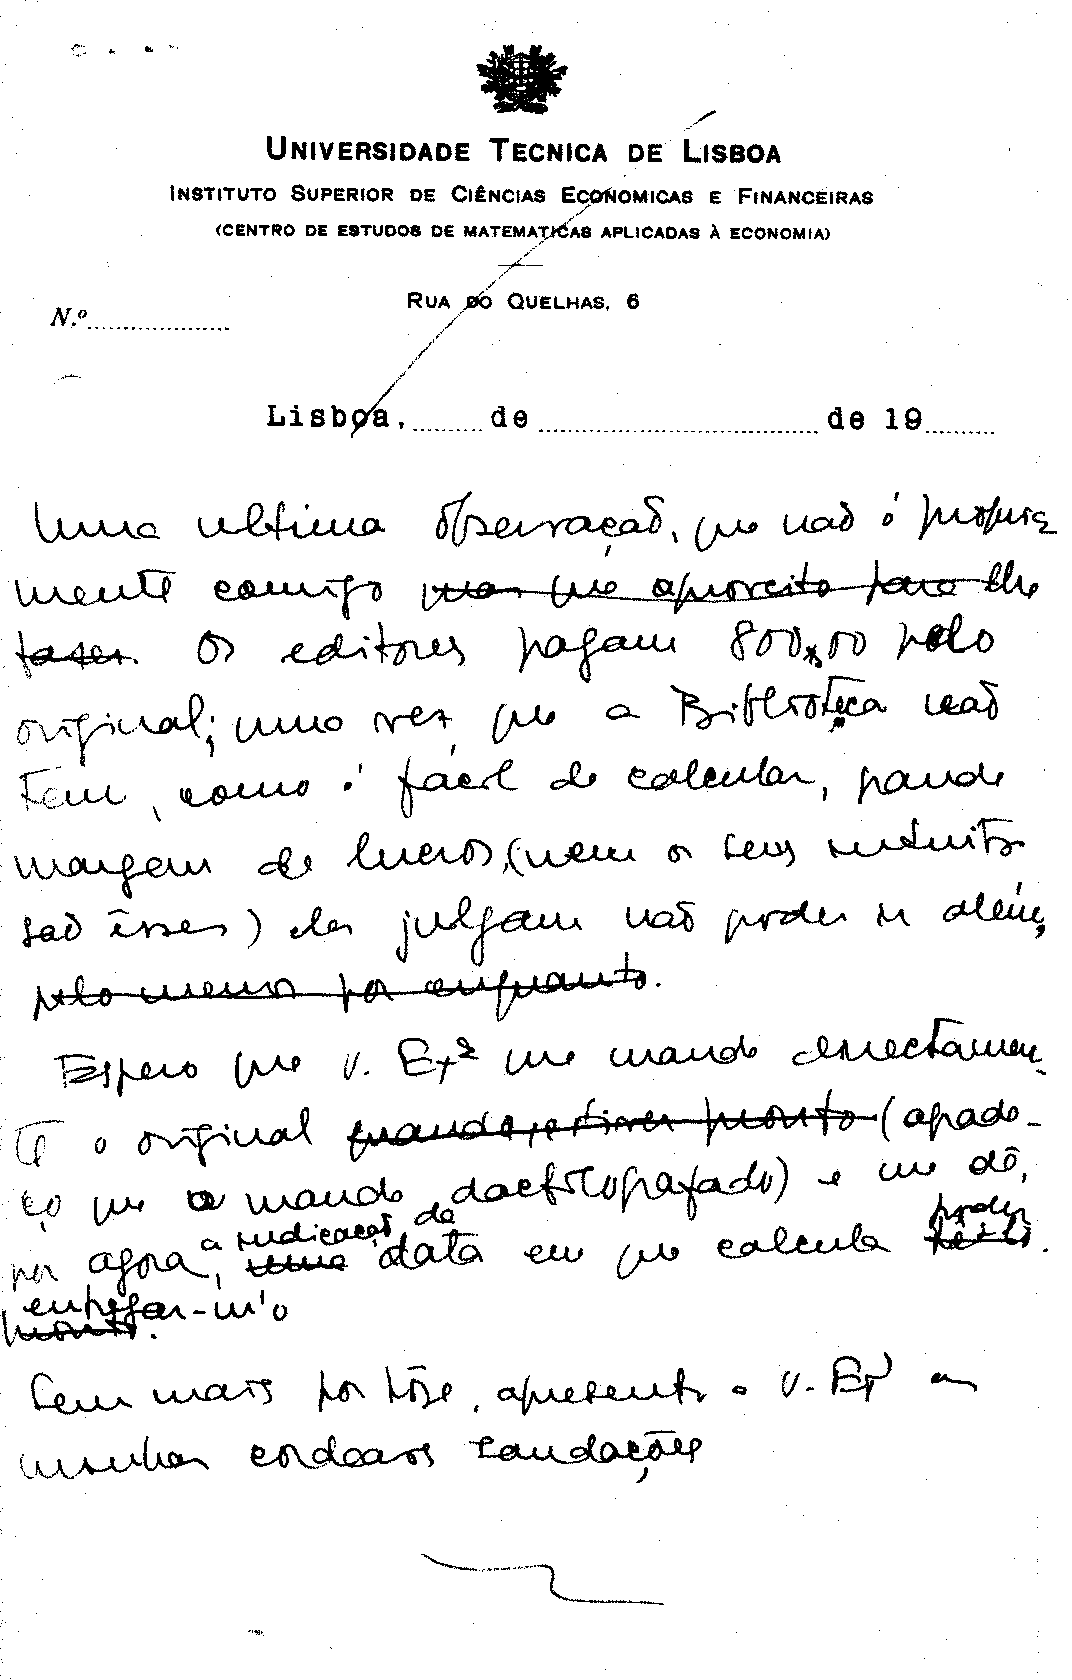 UNIVERSIDADE TECNICA DE LISBOA
INSTITUTO SUPERIOR DE CIÊNCIAS ECONOMICAS E FINANCEIRAS
(CENTRO DE ESTUDOS DE MATEMATICAS APLICADAS À ECONOMIA)
RUA DO QUELHAS, 6
N.º
Lisboa, de de 19
Uma ultima observação, que não é propria
mente comigo mas que aproveito para lhe
fazer. Os editores pagam 800$00 pelo
original; uma vez que a Biblioteca não
tem, como é fácil de calcular, grande
margem de lucros, (nem os seus intuitos
são êsses) eles julgam não poder ir além,
pelo menos por enquanto.
Espero que V. Exª me mande directamen-
te o original quando estiver pronto (agrade-
ço que o mande dactilografado) e me dê,
por agora, a indicação da data em que calcula poder
entregar-m'o
pronto.
Sem mais por hoje, apresento a V. Exª as
minhas cordeais saudações